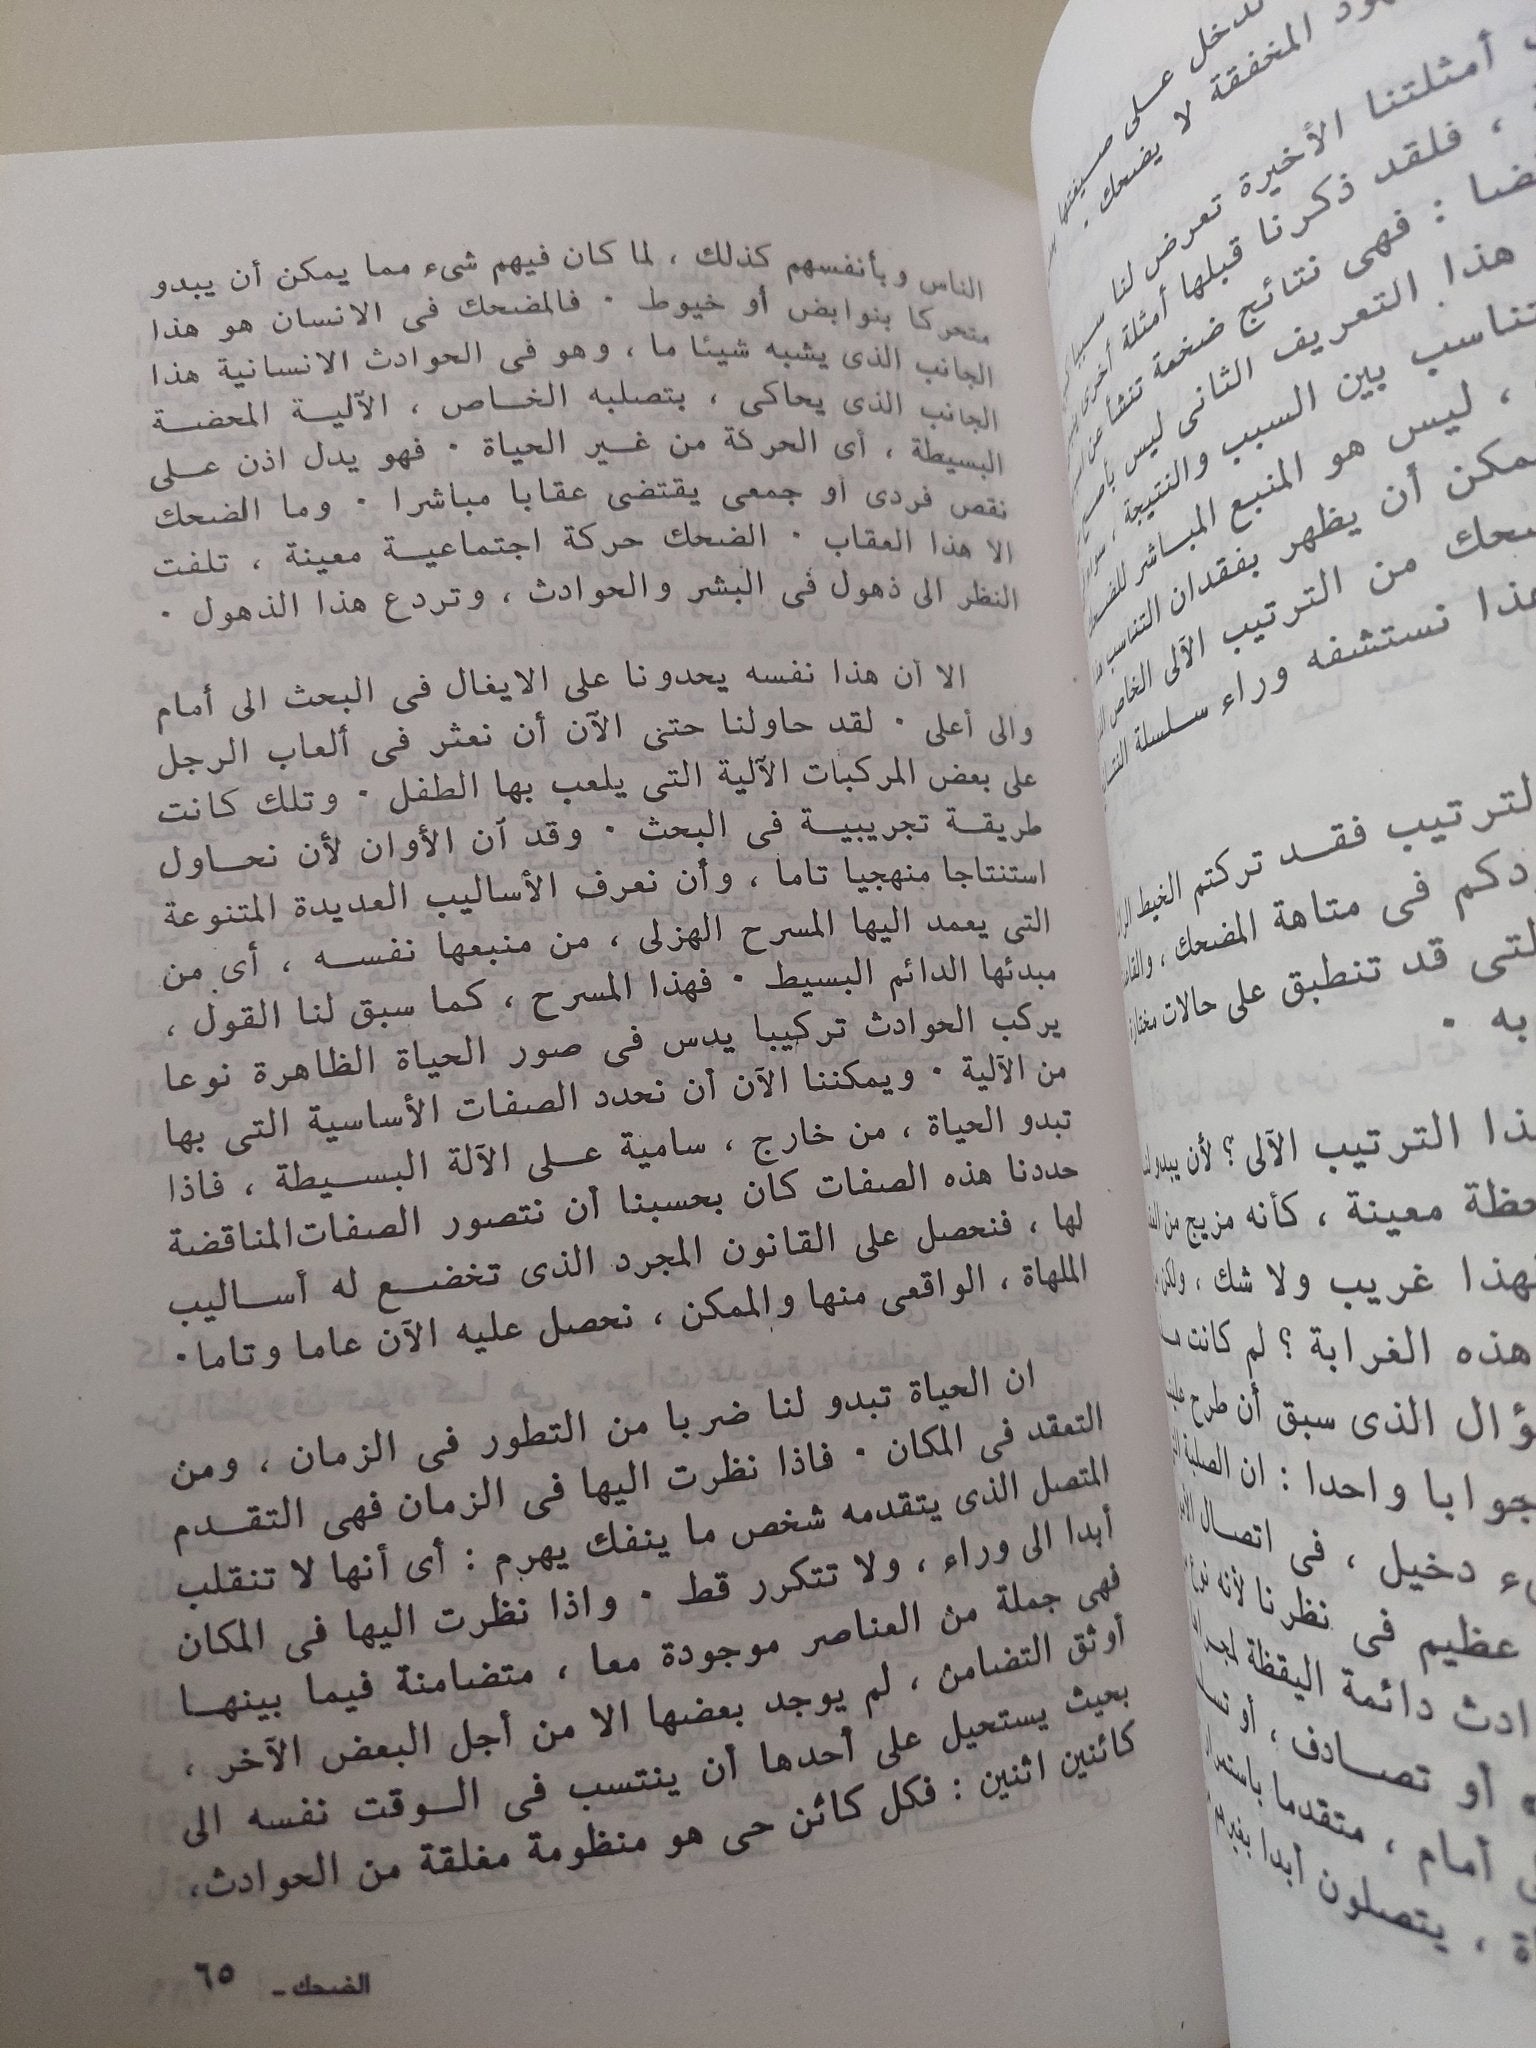 الناس وبأنفسهم كذلك ، لما كان فيهم شىء مما يمكن أن يبدو
متحركا بنوابض أو خيوط ٠ فالمضحك فى الانسان هو هذا
الجانب الذى يشبه شيئا ما ، وهو فى الحوادث الانسانية هذا
الجانب الذى يحاكى ، بتصلبه الخـاص ، الآلية المحضة
البسيطة ، أى الحركة من غـير الحياة ٠ فهو يدل اذن عـلى
نقص فردى أو جمعى يقتضى عقابا مباشرا ٠ وما الضحك
الا هذا العقاب ٠ الضحك حركة اجتماعيـة معينة ، تلفت
النظر الى ذهول فى البشر والحوادث ، وتردع هذا الذهول ٠
الا أن هذا نفسه يحدونا على الايغال فى البحث الى أمام
والى أعلى ٠ لقد حاولنا حتى الآن أن نعثر فى ألعاب الرجل
على بعض المركبات الآلية التى يلعب بها الطفل ٠ وتلك كانت
طريقـة تجريبيـة فى البحث ٠ وقد آن الأوان لأن نحـاول
استنتاجا منهجيا تاما ، وأن نعرف الأساليب العديدة المتنوعة
التى يعمد اليها المسرح الهزلى ، من منبعها نفسـه ، أى من
مبدئها الدائم البسيط ٠ فهذا المسرح ، كما سبق لنا القول ،
يركب الحوادث تركيبا يدس فى صور الحياة الظاهرة نوعا
من الآلية ٠ ويمكننا الآن أن نحدد الصفات الأساسية التى بها
تبدو الحياة ، من خارج ، سامية عـلى الآلة البسـيطة ، فاذا
حددنا هذه الصفات كان بحسبنا أن نتصور الصفات المناقضة
لها ، فنحصل على القانون المجرد الذى تخضـع له أسـاليب
الملهاة ، الواقعى منها والممكن ، نحصل عليه الآن عاما وتاما٠
ان الحياة تبدو لنا ضربا من التطور فى الزمان ، ومن
التعقد فى المكان ٠ فاذا نظرت اليها فى الزمان فهى التقـدم
المتصل الذى يتقدمه شخص ما ينفك يهرم : أى أنها لا تنقلب
أبدا الى وراء ، ولا تتكرر قط ٠ واذا نظرت اليها فى المكان
فهى جملة من العناصر موجودة معا ، متضامنة فيما بينهـا
أوثق التضامن ، لم يوجد بعضها الا من أجل البعض الآخر ،
بحيث يستحيل على أحدها أن ينتسب فى الـوقت نفسه الى
كائنين اثنين : فكل كائن حى هو منظومة مغلقة من الحوادث،
الضحك ـ ٦٥
المخفقة لا يضحك ٠
أمثلتنا الأخيرة تعرض لنا
، فلقد ذكرنا قبلها أمثلة أخرى
: فهى نتائج ضخمة تنشأ عن
هذا التعريف الثانى ليس بأصح
بين السبب والنتيجة ،
، ليس هو المنبع المباشر للضحك
أن يظهر بفقدان التناسب
من الترتيب الآلى الخاص
نستشفه وراء سلسلة
فقـد تركتم الخيط
فى متاهة المضحك ،
قد تنطبق على حالات مختارة
به ٠
الترتيب الآلى ؟ لأن يبدو لنا
معينة ، كأنه مزيج من
غريب ولا شك ، ولكن
هذه الغرابة ؟ لم كانت
الذى سبق أن طرح
واحدا : ان الصلابة
دخيل ، فى اتصـال
عظيم فى نظرنا لأنه
دائمة اليقظة
أو تصـادف ، أو
أمام ، متقدما باستمرار
، يتصلون أبدا بغيرهم